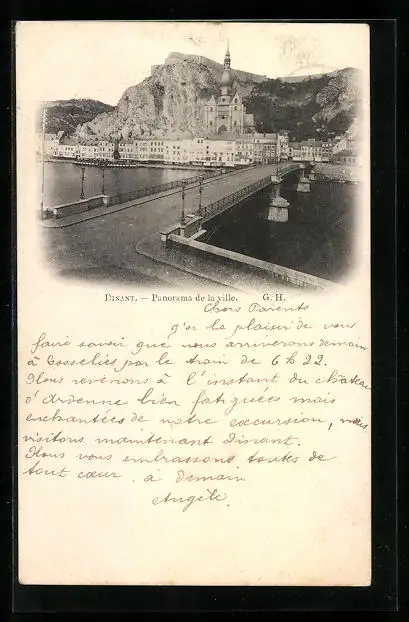 DINANT. — Panorama de la ville. G. H.
Chers Parents
j'ai le plaisir de vous
faire savoir que nous arriverons demain
à Gosselies par le train de 6 h 22.
Nous revenons à l'instant du château
d'Ardenne bien fatiguées mais
enchantées de notre excursion, nous
visitons maintenant Dinant.
Nous vous embrassons toutes de
tout cœur. à demain
Angèle.